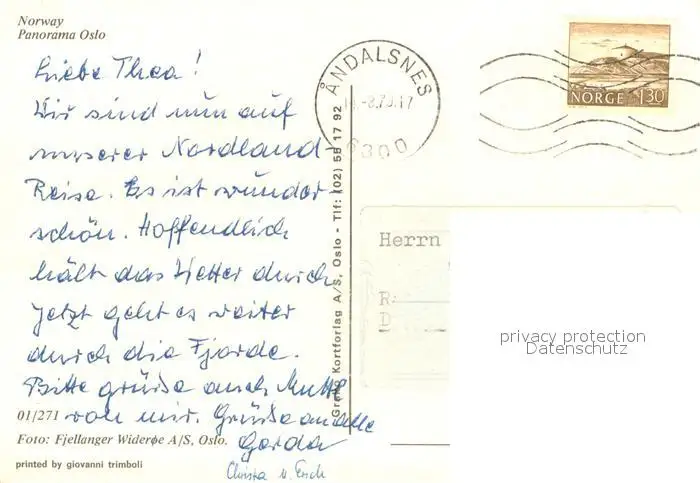 Norway
Panorama Oslo
Liebe Thea!
Wir sind nun auf
unserer Nordland-
Reise. Es ist wunder
schön. Hoffendlich
hält das Wetter durch
Jetzt geht es weiter
durch die Fjorde.
Bitte grüße auch Mutti
von mir. Grüße an alle
Gerda
Christa u. Erich
01/271
Foto: Fjellanger Widerøe A/S, Oslo.
printed by giovanni trimboli
Kortforlag A/S, Oslo - Tlf: (02) 58 17 92
ÅNDALSNES
6300
NORGE 130
Herrn
privacy protection
Datenschutz